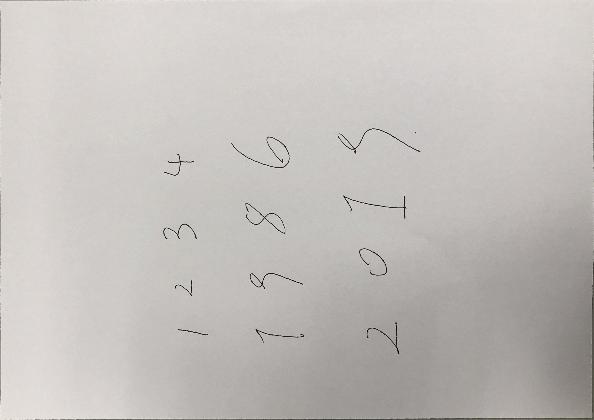 1 2 3 4
1 9 8 6
2 0 1 9